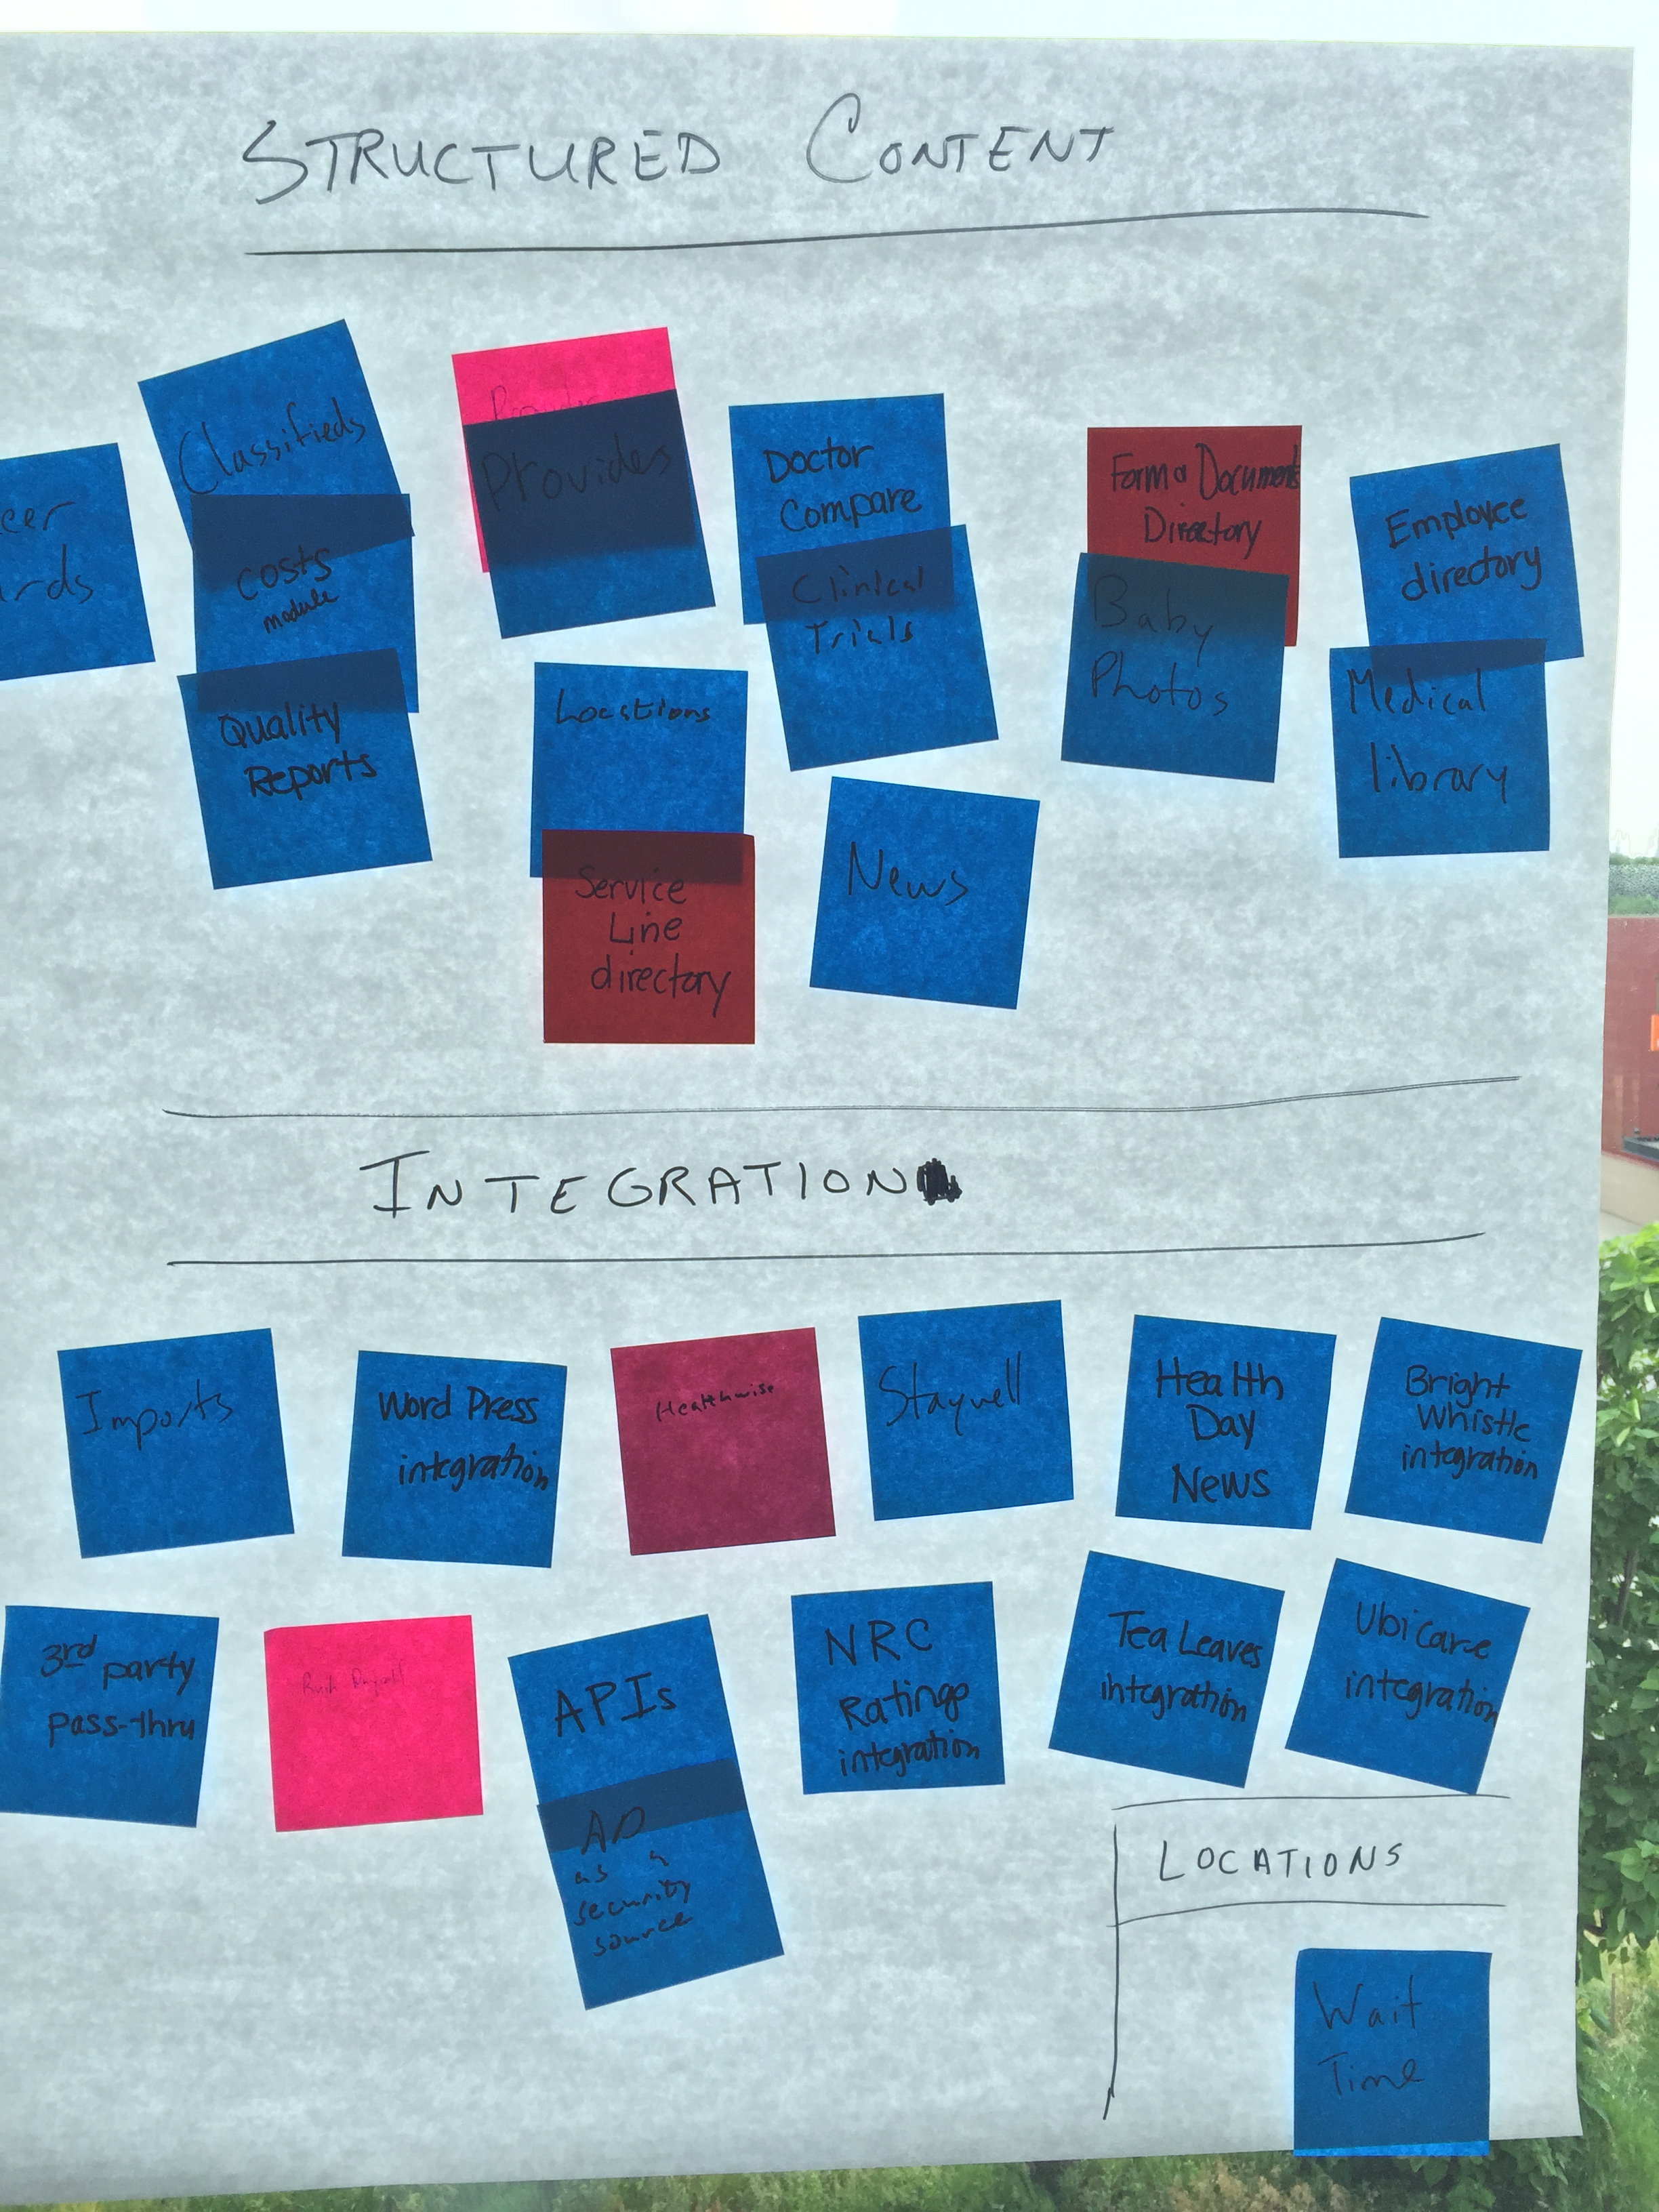 STRUCTURED CONTENT
Classifieds
costs
module
Quality
Reports
Provides
Doctor
Compare
Clinical
Trials
Locations
Service
Line
directory
News
Form & Documents
Directory
Baby
Photos
Employee
directory
Medical
library
INTEGRATION
Imports
Word Press
integration
Healthwise
Staywell
Health
Day
News
Bright
Whistle
integration
3rd party
pass-thru
APIs
AD
as a
security
source
NRC
Ratings
integration
Tea Leaves
integration
Ubicare
integration
LOCATIONS
Wait
Time